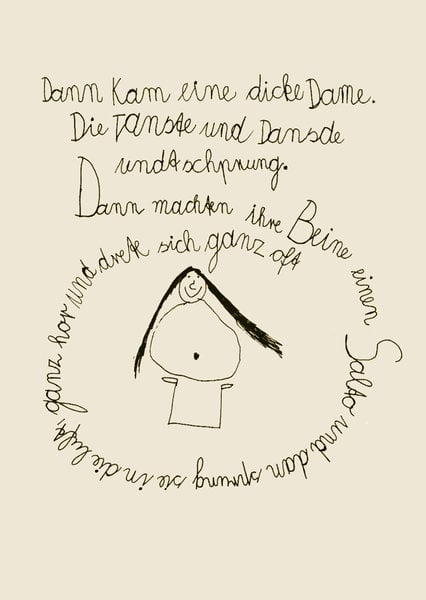 Dann Kam eine dicke Dame.
Die Tanste und Dansde
undtschprung.
Dann machten ihre Beine einen Salto und dan sprung sie in die luft, ganz hor und drete sich ganz oft